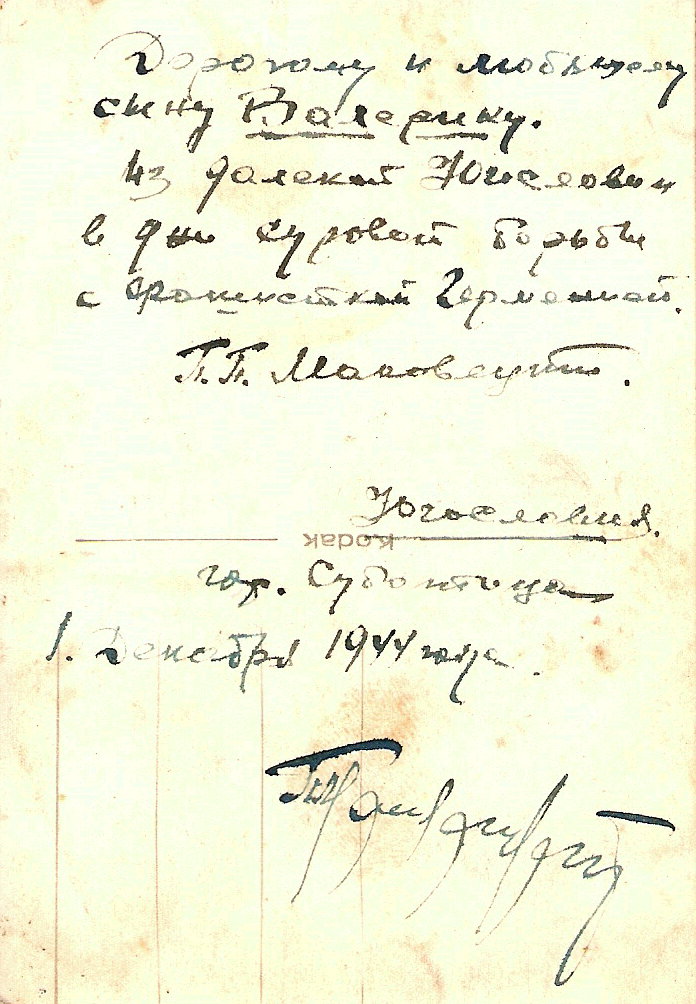 Дорогому и любимому
сыну Валерику.
Из далекой Югославии
в дни суровой борьбы
с фашисткой Германией.
П.П. Маковецкий.
Югославия.
Kodak
гор. Суботица
1. Декабря 1944 года.